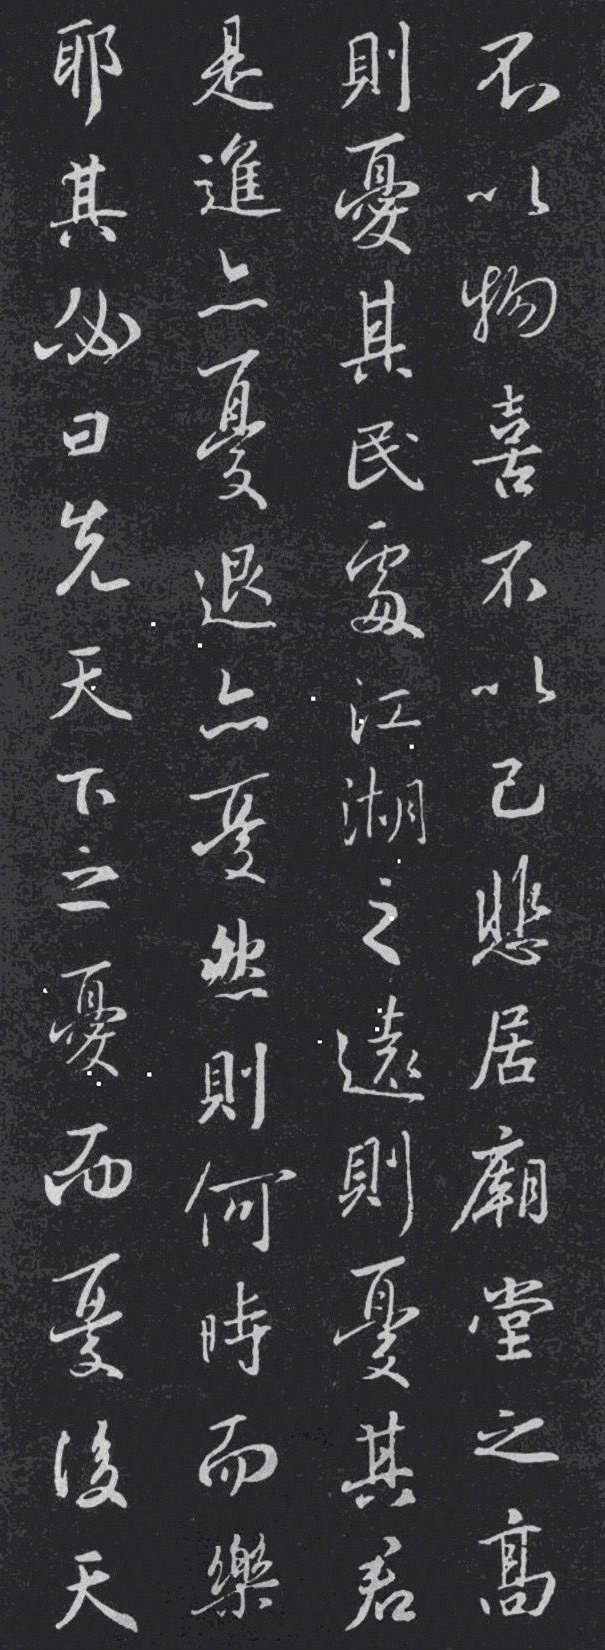 不以物喜不以己悲居廟堂之高
則憂其民處江湖之遠則憂其君
是進亦憂退亦憂然則何時而樂
耶其必曰先天下之憂而憂後天